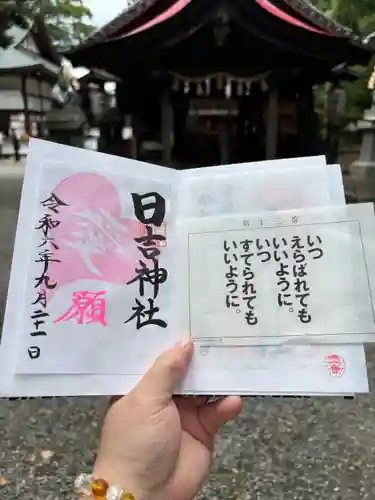 第十三番
いつ
えらばれても
いいように。
いつ
すてられても
いいように。
日吉神社
願
令和六年九月二十一日